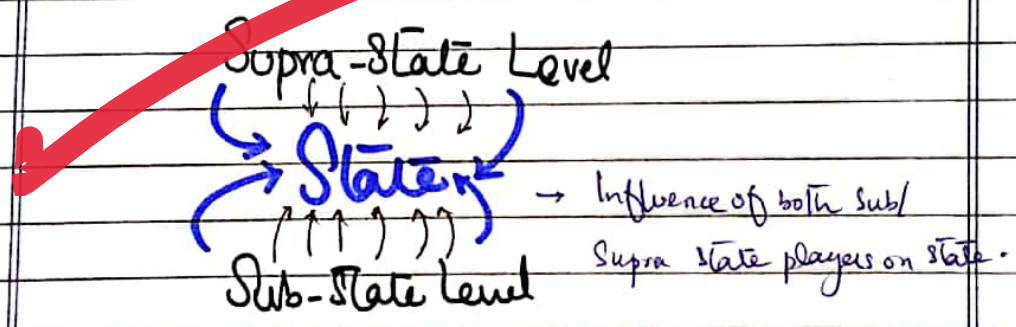 Supra-State Level
State
→ Influence of both Sub/
Supra state players on state.
Sub-State Level